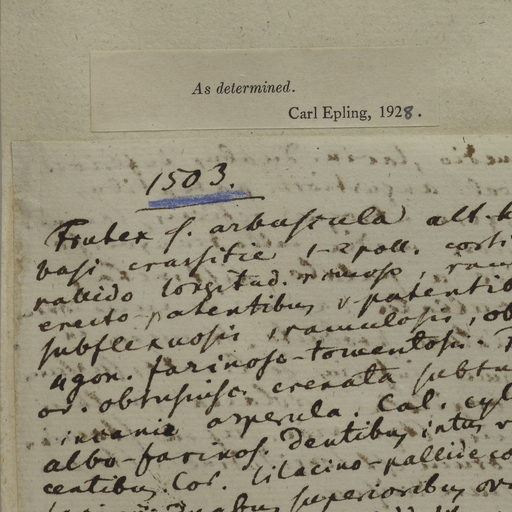 As determined.
Carl Epling, 1928.
1503.
Frutex s. arbuscula alt.
basi crassitie 1-2 poll. corti
pallido longitud. rimoso, ram
erecto-patentibus v. patentib
subflexuosis, ramulosis, ob
4gon. farinoso-tomentosis.
ov. obtusiusc. crenata subtu
incania asperula. Cal. cyl
albo-farinos. dentibus intus
centibus. Cor. lilacino-pallide co
duabus superioribus ov